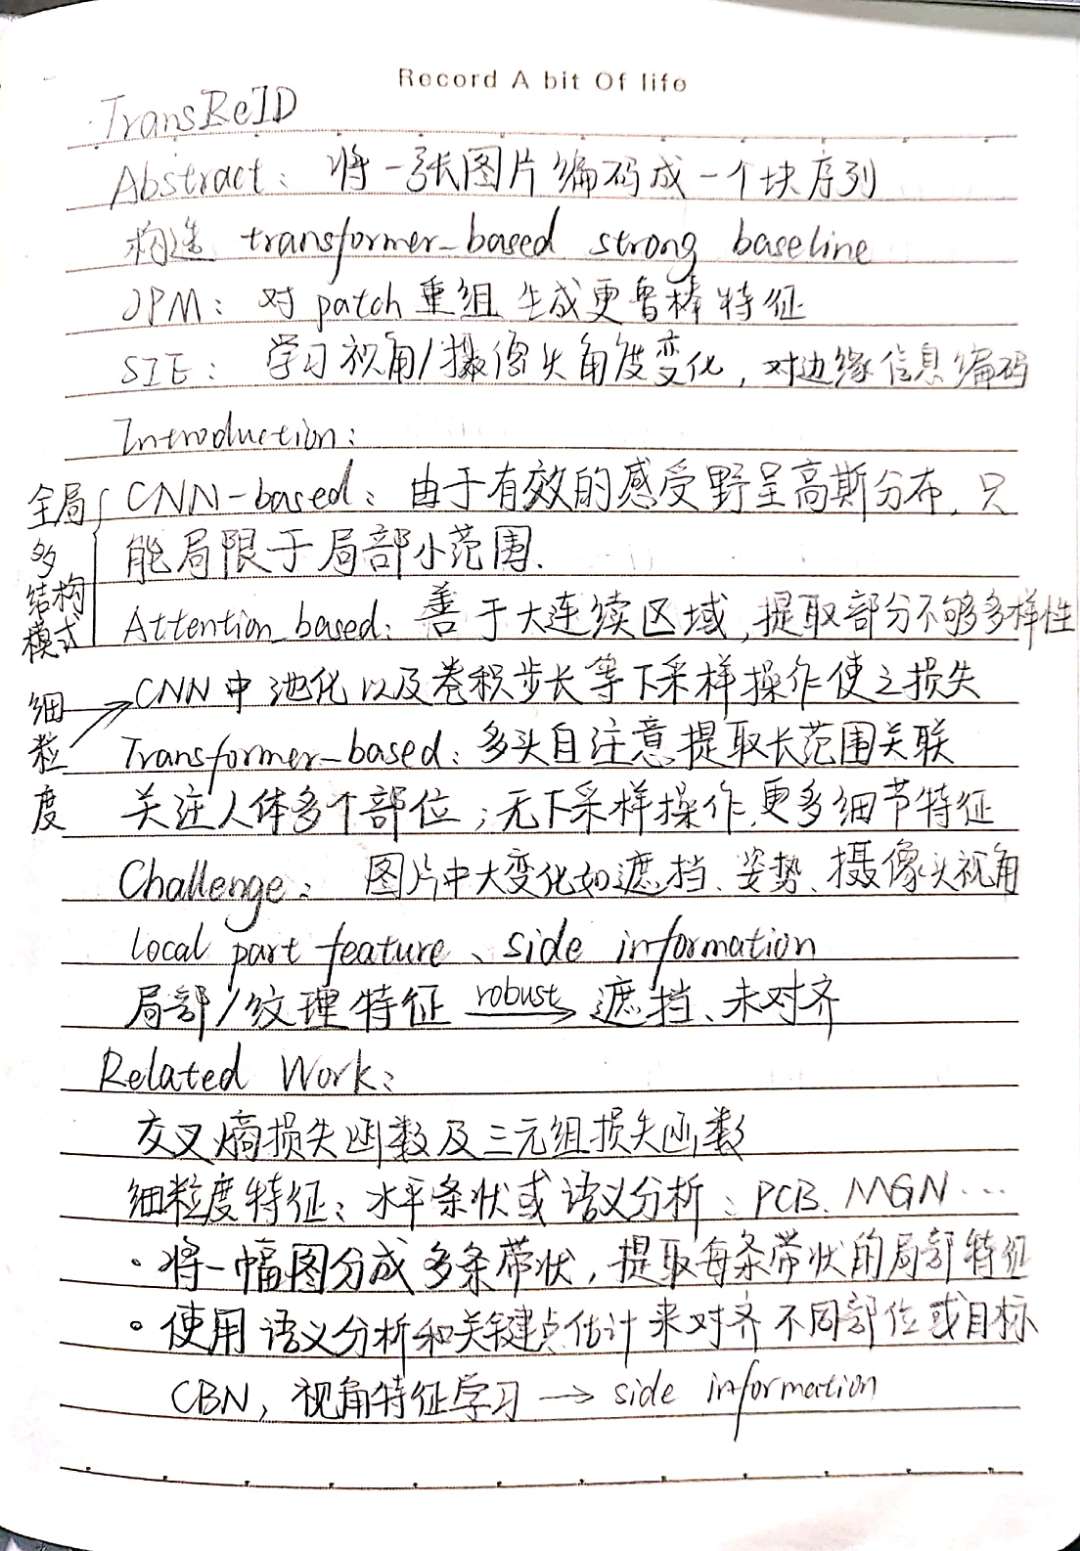 Record A bit Of life
TransReID
Abstract: 将一张图片编码成一个块序列
构造 transformer-based strong baseline
JPM: 对patch重组生成更鲁棒特征
SIE: 学习视角/摄像头角度变化,对边缘信息编码
Introduction:
全局多结构模式
CNN-based: 由于有效的感受野呈高斯分布,只
能局限于局部小范围.
Attention_based: 善于大连续区域,提取部分不够多样性
细粒度
CNN中池化以及卷积步长等下采样操作使之损失
Transformer-based: 多头自注意提取长范围关联
关注人体多个部位;无下采样操作,更多细节特征
Challenge: 图片中大变化如遮挡、姿势、摄像头视角
local part feature、side information
局部/纹理特征 robust→ 遮挡、未对齐
Related Work:
交叉熵损失函数及三元组损失函数
细粒度特征: 水平条状或语义分析: PCB、MGN...
·将一幅图分成多条带状,提取每条带状的局部特征
。使用语义分析和关键点估计来对齐不同部位或目标
CBN, 视角特征学习 → side information